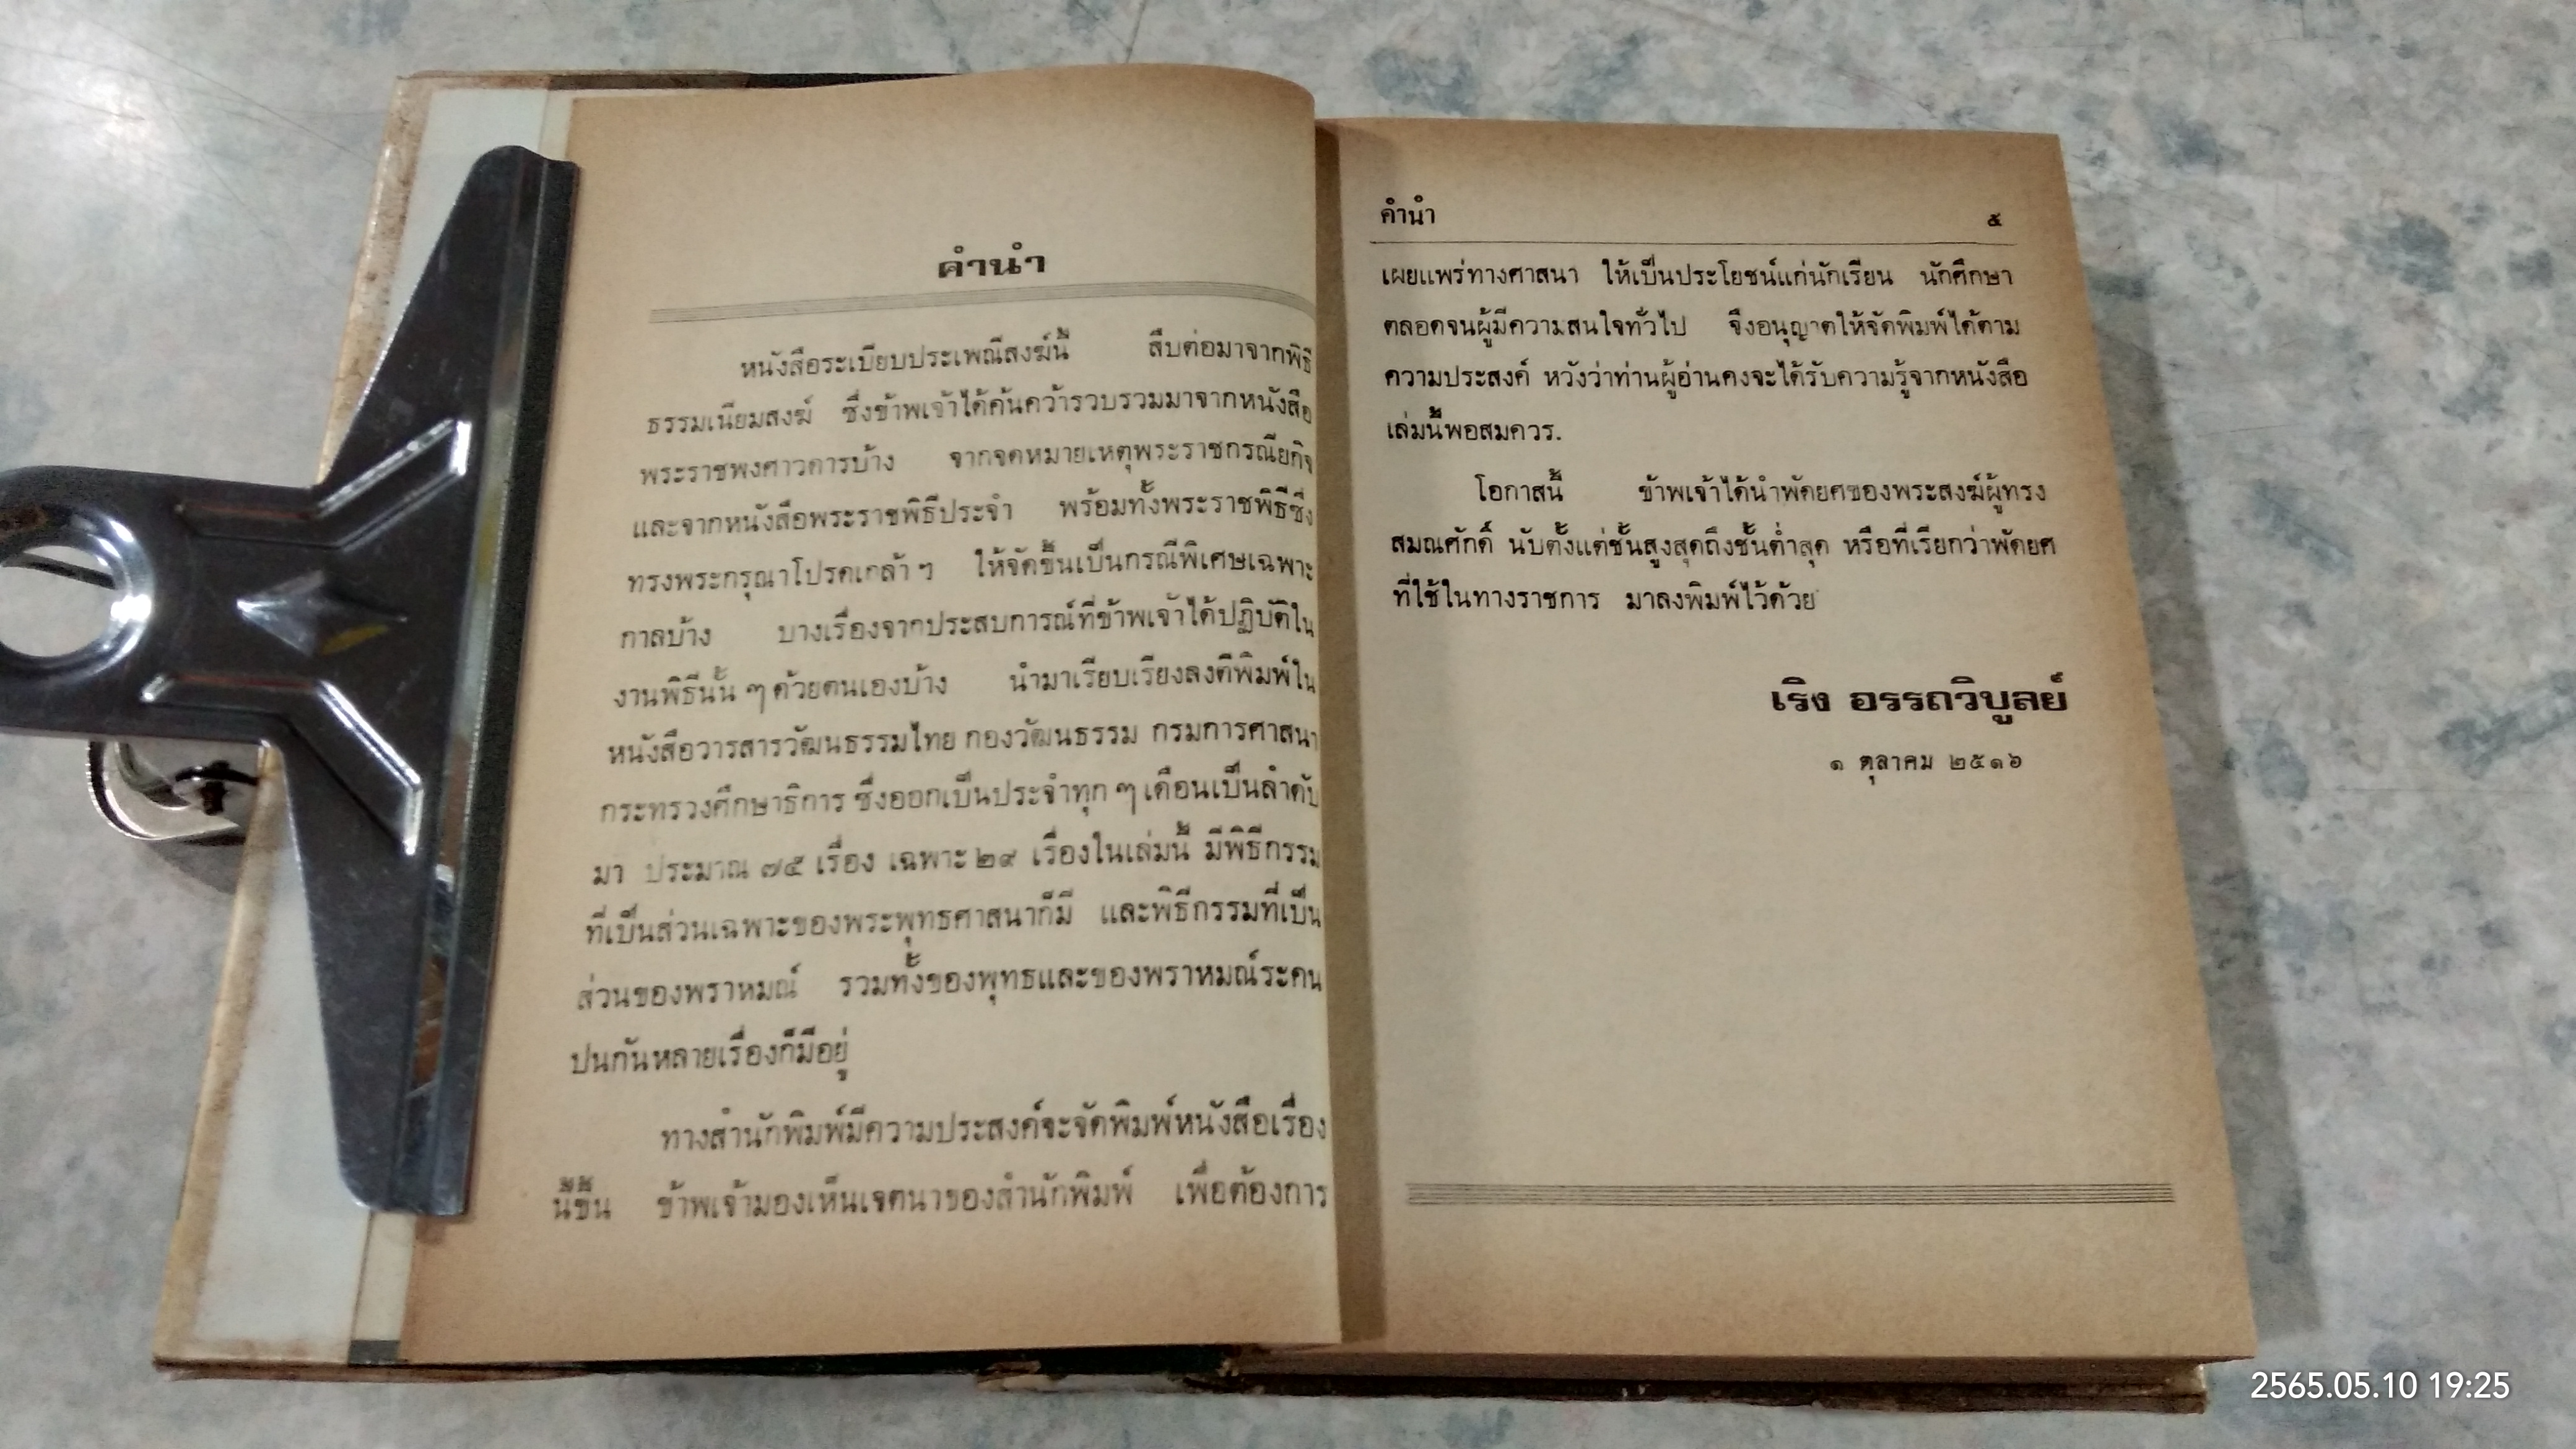 คำนำ
หนังสือระเบียบประเพณีสงฆ์นี้ สืบต่อมาจากพิธี
ธรรมเนียมสงฆ์ ซึ่งข้าพเจ้าได้ค้นคว้ารวบรวมมาจากหนังสือ
พระราชพงศาวดารบ้าง จากจดหมายเหตุพระราชกรณียกิจ
และจากหนังสือพระราชพิธีประจำ พร้อมทั้งพระราชพิธีซึ่ง
ทรงพระกรุณาโปรดเกล้า ฯ ให้จัดขึ้นเป็นกรณีพิเศษเฉพาะ
กาลบ้าง บางเรื่องจากประสบการณ์ที่ข้าพเจ้าได้ปฏิบัติใน
งานพิธีนั้น ๆ ด้วยตนเองบ้าง นำมาเรียบเรียงลงตีพิมพ์ใน
หนังสือวารสารวัฒนธรรมไทย กองวัฒนธรรม กรมการศาสนา
กระทรวงศึกษาธิการ ซึ่งออกเป็นประจำทุก ๆ เดือนเป็นลำดับ
มา ประมาณ ๗๕ เรื่อง เฉพาะ ๒๙ เรื่องในเล่มนี้ มีพิธีกรรม
ที่เป็นส่วนเฉพาะของพระพุทธศาสนาก็มี และพิธีกรรมที่เป็น
ส่วนของพราหมณ์ รวมทั้งของพุทธและของพราหมณ์ระคน
ปนกันหลายเรื่องก็มีอยู่
ทางสำนักพิมพ์มีความประสงค์จะจัดพิมพ์หนังสือเรื่อง
นี้ขึ้น ข้าพเจ้ามองเห็นเจตนาของสำนักพิมพ์ เพื่อต้องการ
คำนำ ๕
เผยแพร่ทางศาสนา ให้เป็นประโยชน์แก่นักเรียน นักศึกษา
ตลอดจนผู้มีความสนใจทั่วไป จึงอนุญาตให้จัดพิมพ์ได้ตาม
ความประสงค์ หวังว่าท่านผู้อ่านคงจะได้รับความรู้จากหนังสือ
เล่มนี้พอสมควร.
โอกาสนี้ ข้าพเจ้าได้นำพัดยศของพระสงฆ์ผู้ทรง
สมณศักดิ์ นับตั้งแต่ชั้นสูงสุดถึงชั้นต่ำสุด หรือที่เรียกว่าพัดยศ
ที่ใช้ในทางราชการ มาลงพิมพ์ไว้ด้วย
เริง อรรถวิบูลย์
๑ ตุลาคม ๒๕๑๖
2565.05.10 19:25